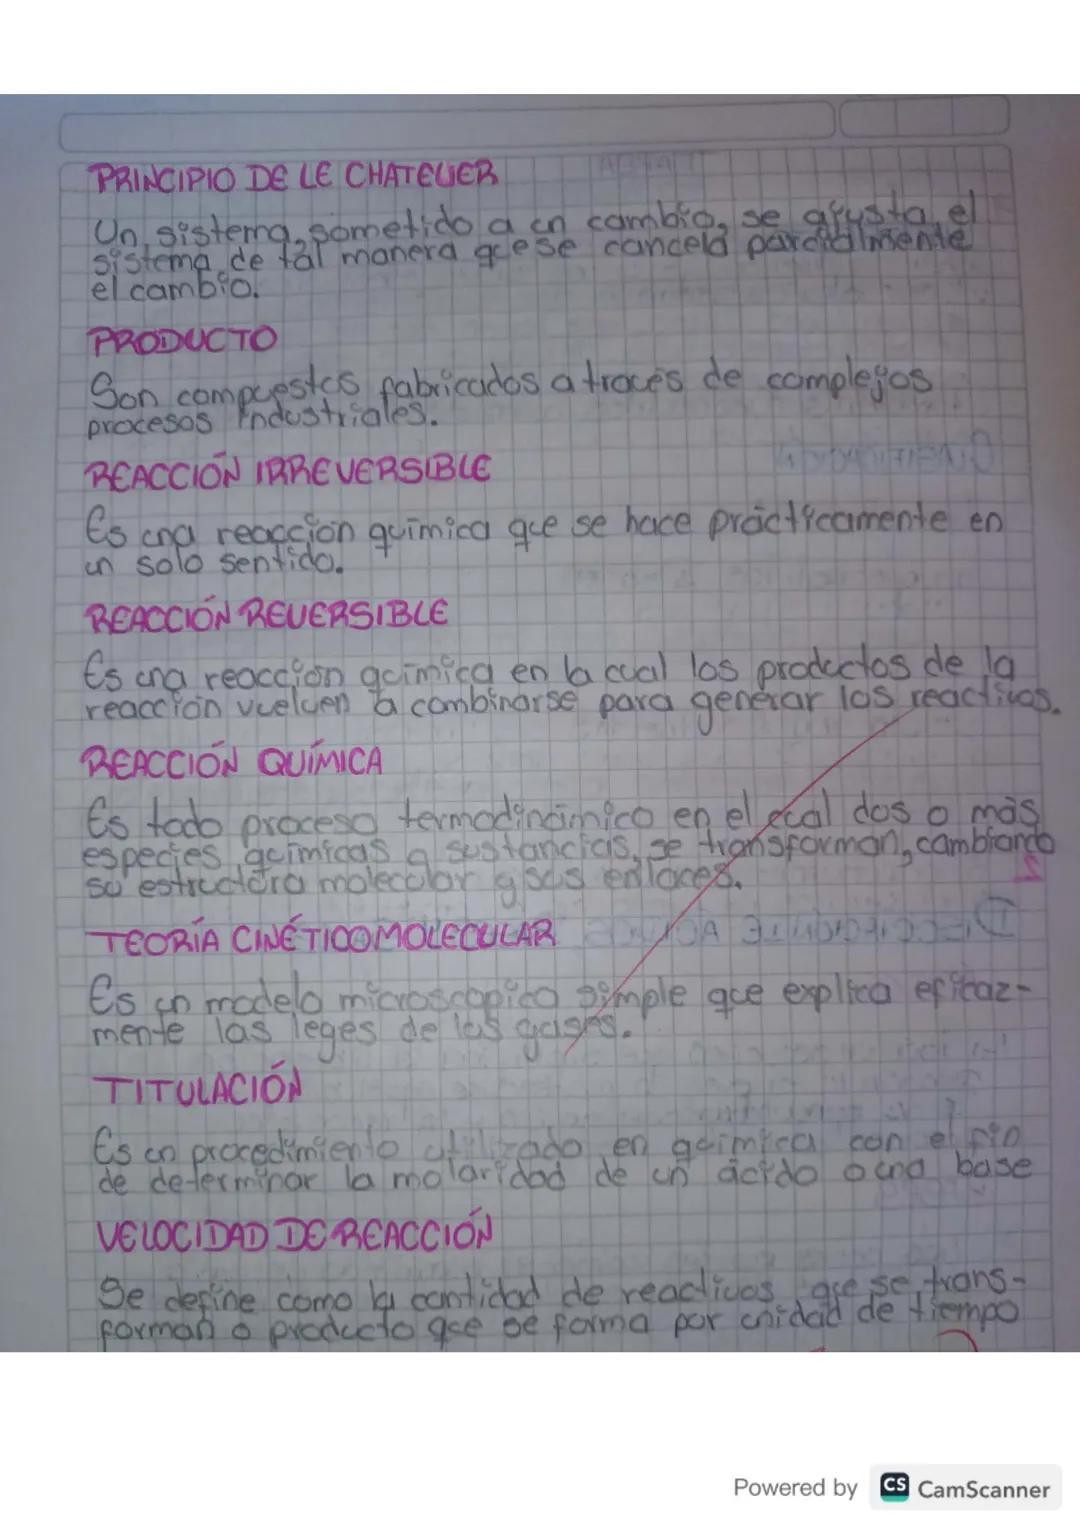 PRINCIPIO DE LE CHATELIER
Un sistema, sometido a un cambio, se ajusta el
sistema de tal manera que se cancela parcialmente
el cambio.
PRODUCTO
Son compuestos fabricados a traves de complejos
procesos industriales.
REACCIÓN IRREVERSIBLE
Es una reacción química que se hace prácticamente en
un solo sentido.
REACCIÓN REVERSIBLE
Es una reacción química en la cual los productos de la
reacción vuelven a combinarse para generar los reactivos.
REACCIÓN QUÍMICA
Es todo proceso termodinámico en el cual dos o más
especies químicas o sustancias, se transforman, cambiando
su estructura molecular y sus enlaces.
TEORÍA CINÉTICO MOLECULAR
Es un modelo microscopico simple que explica eficaz-
mente las leyes de los gases.
TITULACIÓN
Es un procedimiento utilizado en química con el fin
de determinar la molaridad de un ácido o una base
VELOCIDAD DE REACCIÓN
Se define como la cantidad de reactivos que se trans-
forman o producto que se forma por unidad de tiempo
Powered by CS CamScanner